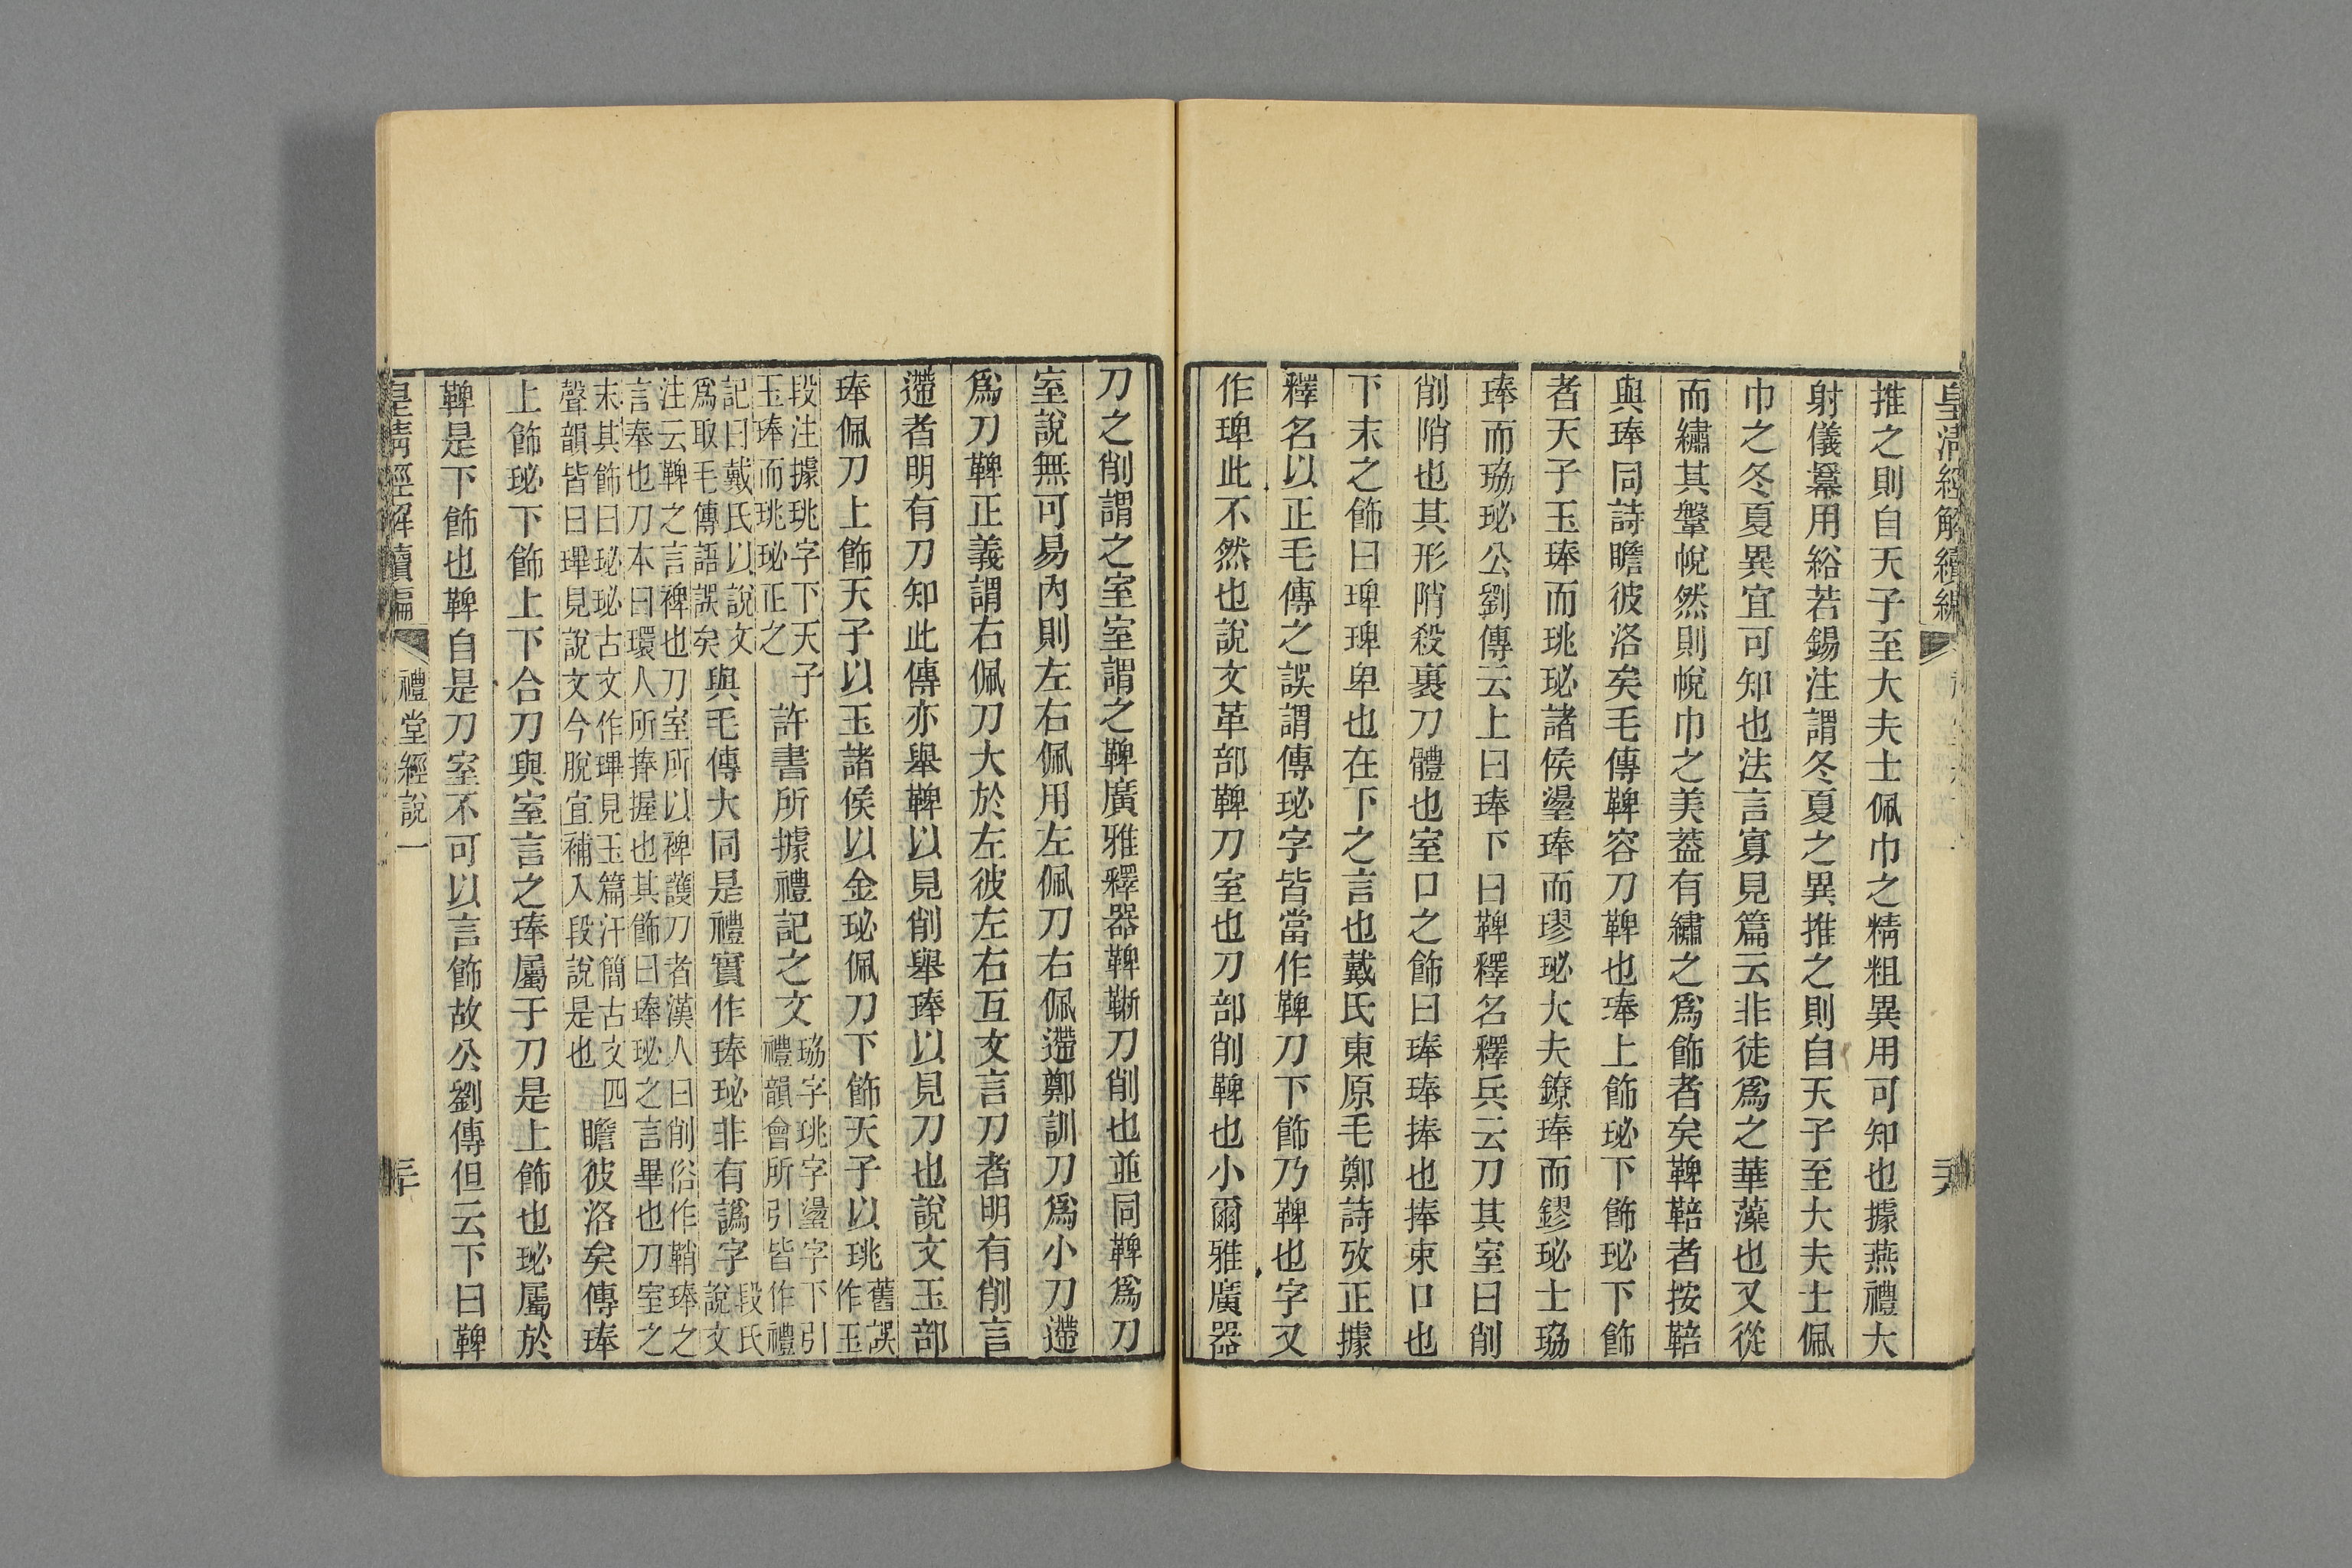 皇清經解續編
推之則自天子至大夫士佩巾之精粗異用可知也據燕禮大
射儀冪用綌若錫注謂冬夏之異推之則自天子至大夫士佩
巾之冬夏異宜可知也法言寡見篇云非徒爲之華藻也又從
而繡其鞶帨然則帨巾之美葢有繡之爲飾者矣鞞鞛者按鞛
與琫同詩瞻彼洛矣毛傳鞞容刀鞞也琫上飾珌下飾珌下飾
者天子玉琫而珧珌諸侯璗琫而璆珌大夫鐐琫而鏐珌士珕
琫而珕珌公劉傳云上曰琫下曰鞞釋名釋兵云刀其室曰削
削陗也其形陗殺裹刀體也室口之飾曰琫琫捧也捧束口也
下末之飾曰琕琕卑也在下之言也戴氏東原毛鄭詩攷正據
釋名以正毛傳之誤謂傳珌字皆當作鞞刀下飾乃鞞也字又
作琕此不然也說文革部鞞刀室也刀部削鞞也小爾雅廣器
刀之削謂之室室謂之鞞廣雅釋器鞞䩠刀削也並同鞞爲刀
室說無可易內則左右佩用左佩刀右佩遰鄭訓刀爲小刀遰
爲刀鞞正義謂右佩刀大於左彼左右互文言刀者明有削言
遰者明有刀知此傳亦舉鞞以見削舉琫以見刀也說文玉部
琫佩刀上飾天子以玉諸侯以金珌佩刀下飾天子以珧舊誤
作玉
段注據珧字下天子
玉琫而珧珌正之許書所據禮記之文珕字珧字璗字下引
禮韻會所引皆作禮
記曰戴氏以說文
爲取毛傳語誤矣與毛傳大同是禮實作琫珌非有譌字段氏
說文
注云鞞之言裨也刀室所以裨護刀者漢人曰削俗作鞘琫之
言奉也刀本曰環人所捧握也其飾曰琫珌之言畢也刀室之
末其飾曰珌珌古文作㻫見玉篇汗簡古文四
聲韻皆曰㻫見說文今脫宜補入段說是也瞻彼洛矣傳琫
上飾珌下飾上下合刀與室言之琫屬于刀是上飾也珌屬於
鞞是下飾也鞞自是刀室不可以言飾故公劉傳但云下曰鞞
皇清經解續編 禮堂經說一 三十